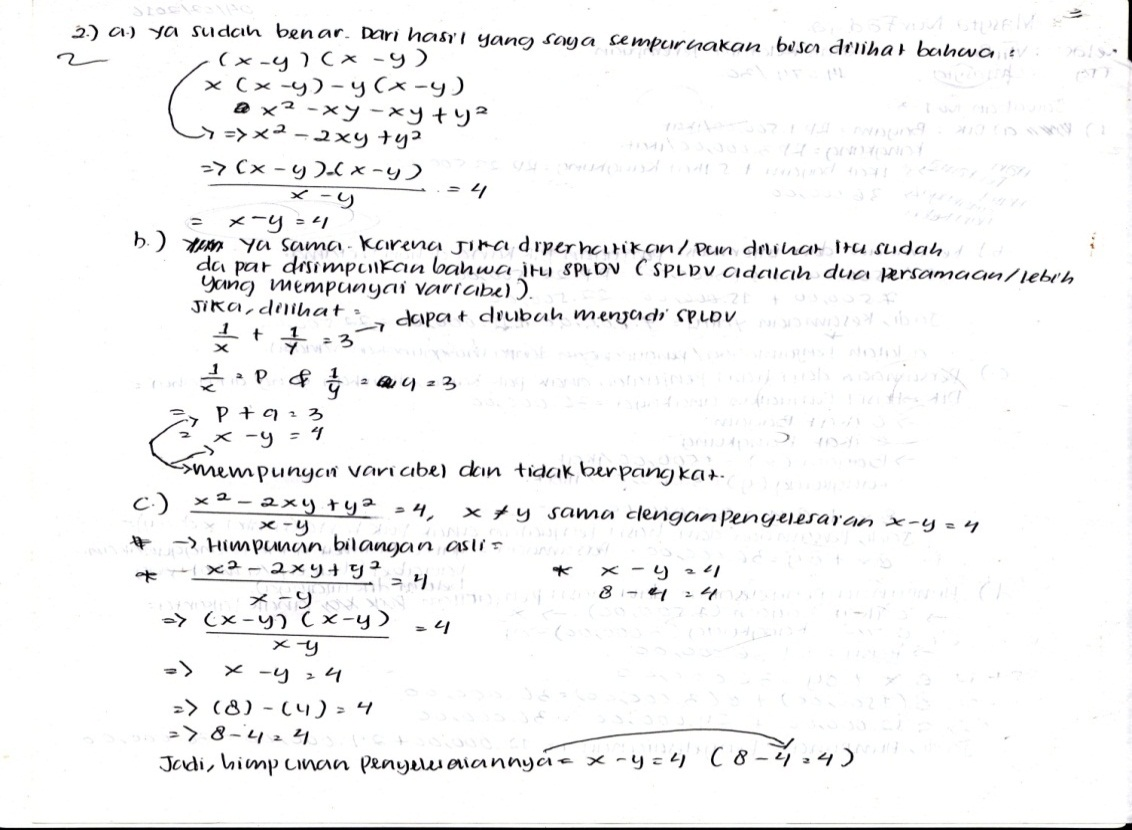 2.) a.) ya sudah benar. Dari hasil yang saya sempurnakan bisa dilihat bahwa :
2
(x - y) (x - y)
x (x - y) - y (x - y)
x² - xy - xy + y²
=> x² - 2xy + y²
=> (x - y) . (x - y) / x - y = 4
= x - y = 4
b.) ya sama. Karena jika diperhatikan / pun dilihat itu sudah
da pat disimpulkan bahwa itu SPLDV (SPLDV adalah dua persamaan / lebih
yang mempunyai variabel).
Jika, dilihat :
1/x + 1/y = 3 → dapat diubah menjadi SPLDV
1/x = p & 1/y = q = 3
=> p + q = 3
= x - y = 4
→ mempunyai variabel dan tidak berpangkat.
c.) x² - 2xy + y² / x - y = 4, x ≠ y sama dengan penyelesaian x - y = 4
* -> Himpunan bilangan asli =
* x² - 2xy + y² / x - y = 4 * x - y = 4
8 - 4 = 4
=> (x - y) (x - y) / x - y = 4
=> x - y = 4
=> (8) - (4) = 4
=> 8 - 4 = 4
Jadi, himpunan penyelesaiannya = x - y = 4 (8 - 4 = 4)